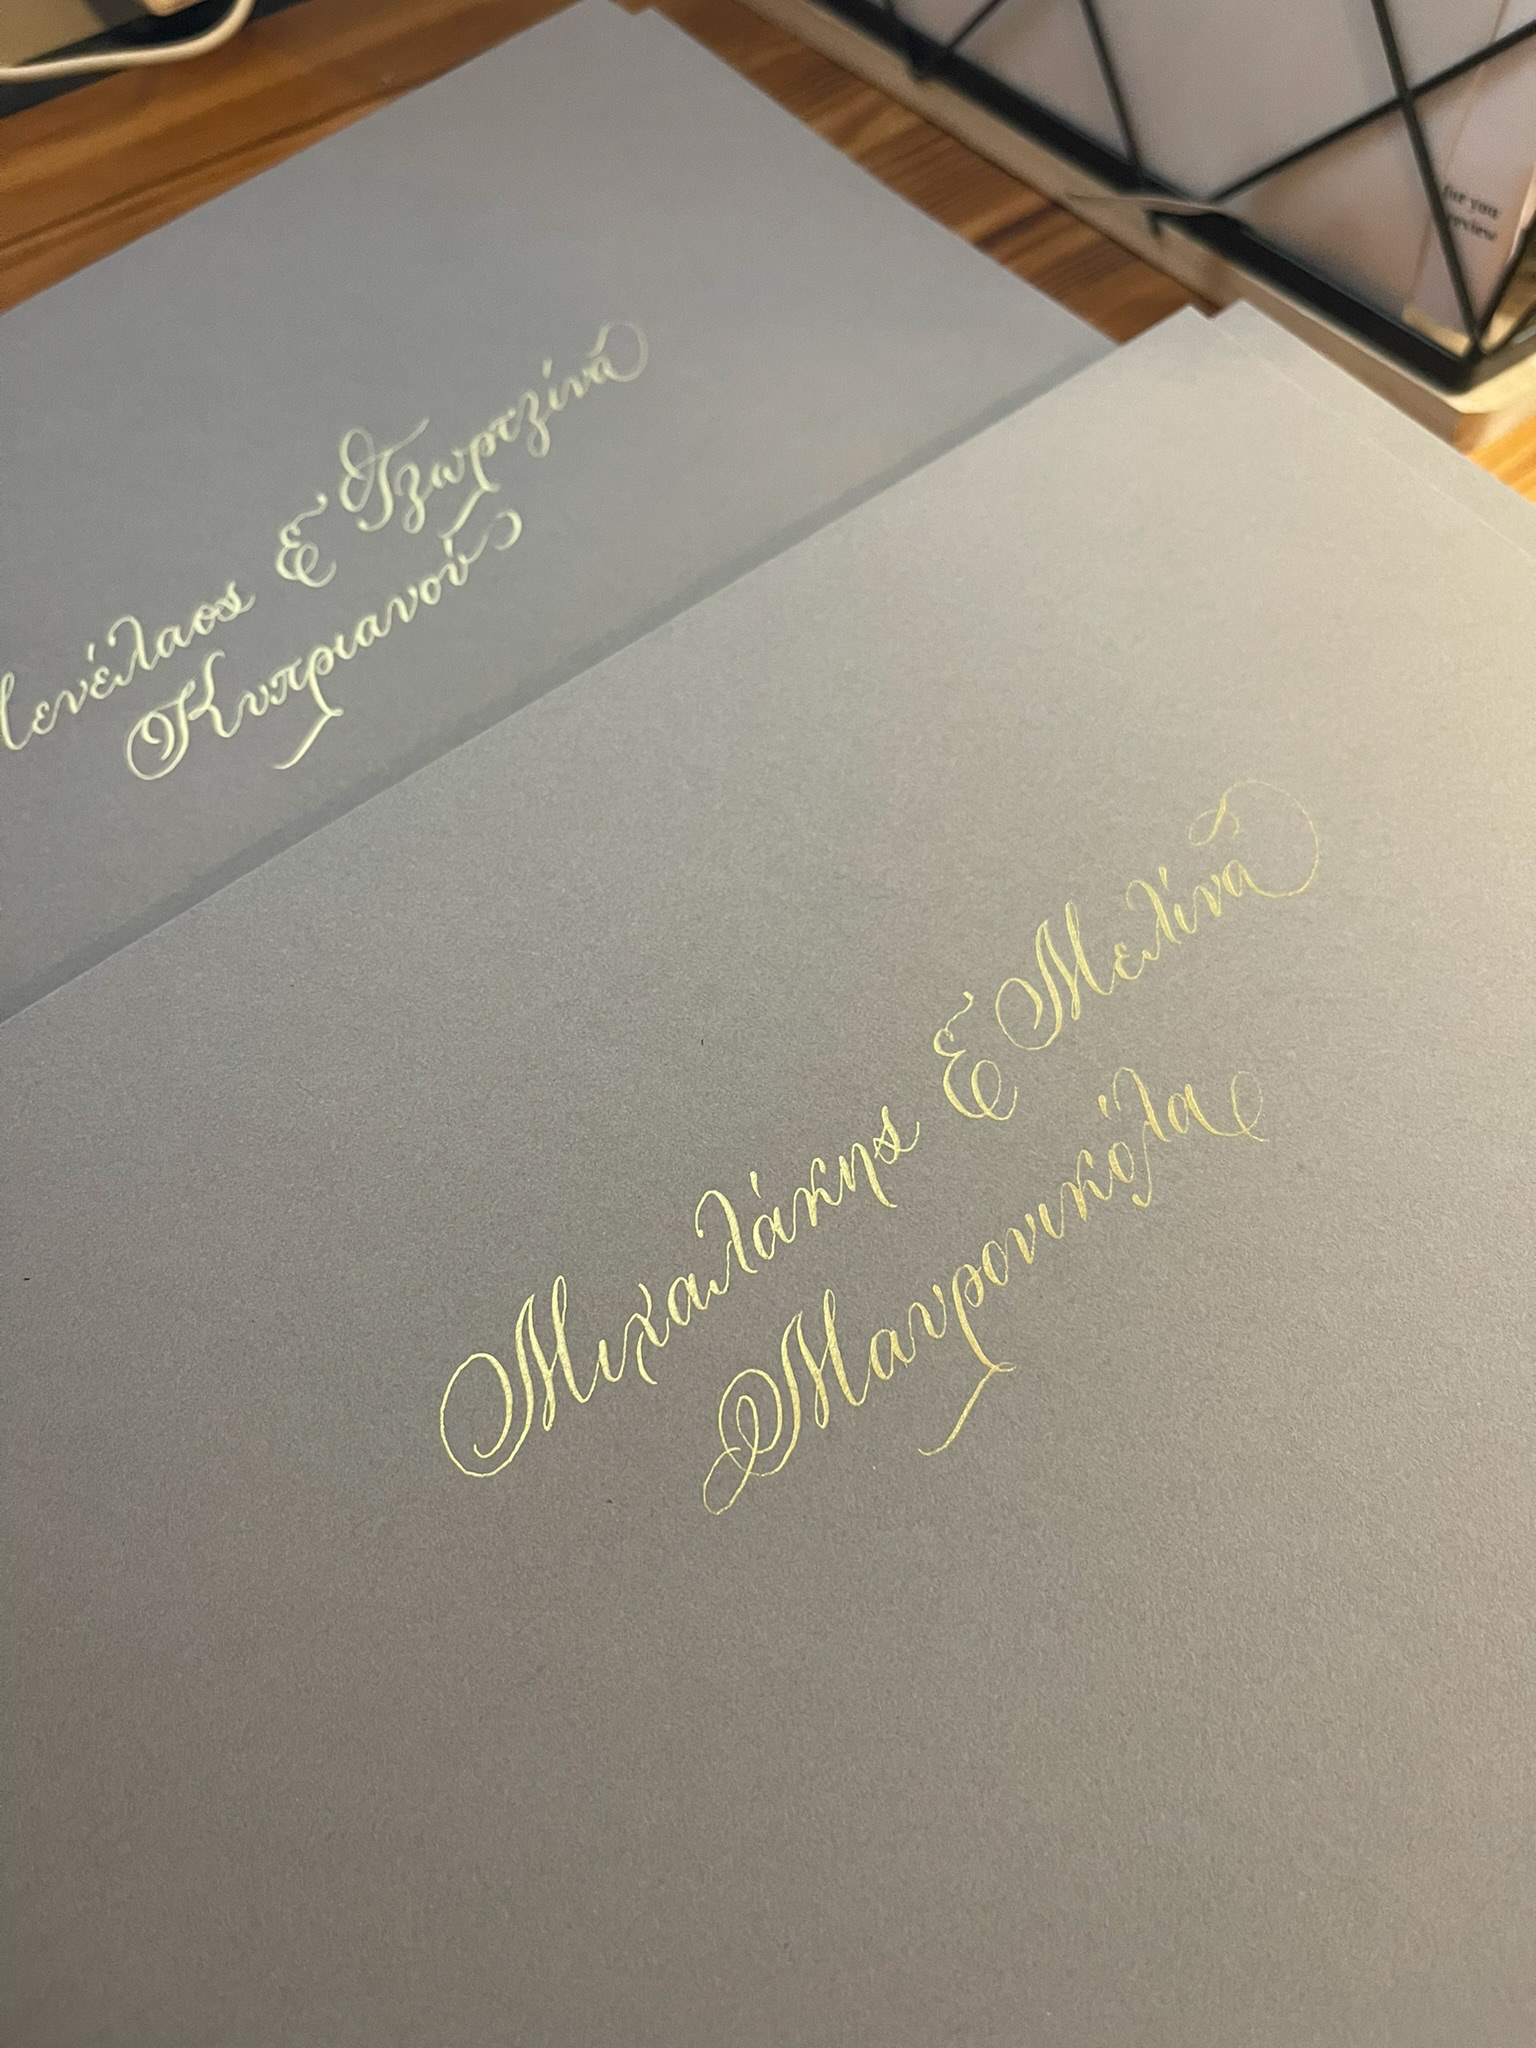 Μενέλαος & Τζωρτζίνα
Κυπριανού
Μιχαλάκης & Μελίνα
Μαυρονικόλα
for you
review